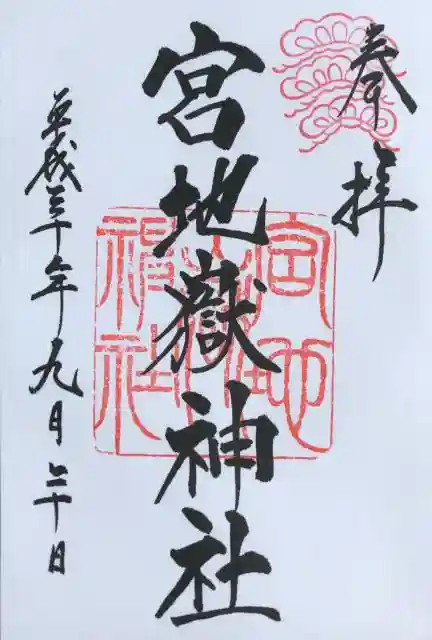 奉拝
宮地嶽神社
宮地嶽神社
平成三十年九月三十日